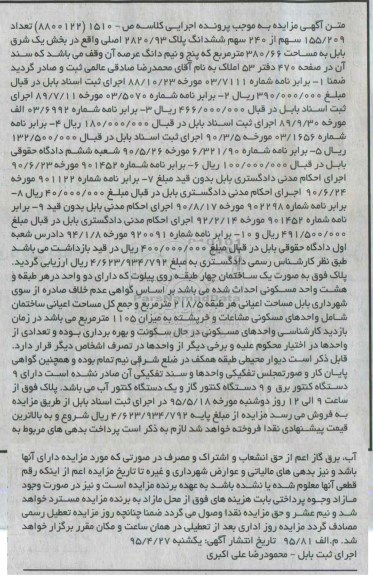 متن آگهی مزایده به موجب پرونده اجرایی کلاسه ص - ۱۵۱۰ (۸۸۰۰۱۲۲) تعداد
۱۵۵/۲۰۹ سهم از ۲۴۰ سهم ششدانگ پلاک ۲۸۲۰/۹۳ اصلی واقع در بخش یک شرق
بابل به مساحت ۳۸۰/۶۶ مترمربع که پنج و نیم دانگ عرصه آن وقف می باشد که سند
آن در صفحه ۴۷۰ دفتر ۵۳ املاک به نام آقای محمدرضا صادقی عالمی ثبت و صادر گردید
ضمنا ۱- برابر نامه شماره ۰۳/۷۱۱۱ مورخه ۸۸/۱۰/۲۳ اجرای ثبت اسناد بابل در قبال
مبلغ ۳۹۰/۰۰۰/۰۰۰ ریال ۲- برابر نامه شماره ۰۳/۵۰۷۰ مورخه ۸۹/۷/۱۱ اجرای
ثبت اسناد بابل در قبال ۴۶۶/۰۰۰/۰۰۰ ریال ۳- برابر نامه شماره ۰۳/۶۹۹۲ الف
مورخه ۸۹/۹/۳۰ اجرای ثبت اسناد بابل در قبال ۱۸۰/۰۰۰/۰۰۰ ریال ۴- برابر نامه
شماره ۰۳/۱۶۵۶ مورخه ۹۰/۳/۵ اجرای ثبت اسناد بابل در قبال ۱۳۲/۵۰۰/۰۰۰
ریال ۵- برابر نامه ۶/۳۲۱/۹۰ مورخه ۹۰/۵/۲۶ شعبه ششم دادگاه حقوقی
بابل در قبال ۱۰۰/۰۰۰/۰۰۰ ریال ۶- برابر نامه شماره ۹۰۱۴۵۲ مورخه ۹۰/۶/۲۳
اجرای احکام مدنی دادگستری بابل بدون قید مبلغ ۷- برابر نامه ۹۰۱۱۲۲ مورخه
۹۰/۶/۲۴ اجرای احکام مدنی دادگستری بابل در قبال مبلغ ۴۰/۰۰۰/۰۰۰ ریال ۸-
برابر نامه شماره ۹۰۲۲۹۸ مورخه ۹۰/۸/۱۷ اجرای احکام مدنی بابل بدون قید ۹- برابر
نامه شماره ۹۰۱۴۵۲ مورخه ۹۲/۲/۱۴ اجرای احکام مدنی دادگستری بابل در قبال مبلغ
۴۹۱/۵۰۰/۰۰۰ ریال و ۱۰- برابر نامه شماره ۹۲۰۰۹۱ مورخه ۹۴/۱/۸ دادرس شعبه
اول دادگاه حقوقی بابل در قبال مبلغ ۴۰۰/۰۰۰/۰۰۰ ریال در قید بازداشت می باشد
طبق نظر کارشناس رسمی دادگستری به مبلغ ۴/۶۲۳/۹۳۴/۷۹۲ ریال ارزیابی گردید.
پلاک فوق به صورت یک ساختمان چهار طبقه روی پیلوت که دارای دو واحد درهر طبقه و
هشت واحد مسکونی احداث شده می باشد بر اساس گواهی عدم خلاف صادره از سوی
شهرداری بابل مساحت اعیانی هر طبقه ۲۱۸/۵ مترمربع و جمع کل مساحت اعیانی ساختمان
شامل واحدهای مسکونی مشاعات و خرپشته به میزان ۱۱۰۵ مترمربع می باشد در زمان
بازدید کارشناسی واحدهای مسکونی در حال سکونت و بهره برداری بوده و تعدادی از
واحدها در اختیار محکوم علیه و برخی دیگر از واحدها در تصرف اشخاص دیگر قرار دارد.
قابل ذکر است دیوار محیطی طبقه همکف در ضلع شرقی نیم تمام بوده و همچنین گواهی
پایان کار و صورتمجلس تفکیکی واحدها و سند تفکیکی آن صادر نشده است دارای ۹
دستگاه کنتور برق و ۹ دستگاه کنتور گاز و یک دستگاه کنتور آب می باشد. پلاک فوق از
ساعت ۹ الی ۱۲ روز دوشنبه مورخه ۹۵/۵/۱۸ در اجرای ثبت اسناد بابل از طریق مزایده
به فروش می رسد مزایده از مبلغ پایه ۴/۶۲۳/۹۳۴/۷۹۲ ریال شروع و به بالاترین
قیمت پیشنهادی نقدا فروخته خواهد شد لازم به ذکر است پرداخت بدهی های مربوط به
آب، برق گاز اعم از حق انشعاب و اشتراک و مصرف در صورتی که مورد مزایده دارای آنها
باشد و نیز بدهی های مالیاتی و عوارض شهرداری و غیره تا تاریخ مزایده اعم از اینکه رقم
قطعی آنها معلوم شده یا نشده باشد به عهده برنده مزایده است و نیز در صورت وجود
مازاد وجوه پرداختی بابت هزینه های فوق از محل مازاد به برنده مزایده مسترد خواهد
شد و نیم عشر و حق مزایده نقدا وصول می گردد ضمنا چنانچه روز مزایده تعطیل رسمی
مصادف گردد مزایده روز اداری بعد از تعطیلی در همان ساعت و مکان مقرر برگزار خواهد
شد. م.الف ۹۵/۸۱ تاریخ انتشار آگهی: یکشنبه ۹۵/۴/۲۷
اجرای ثبت بابل - محمودرضا علی اکبری